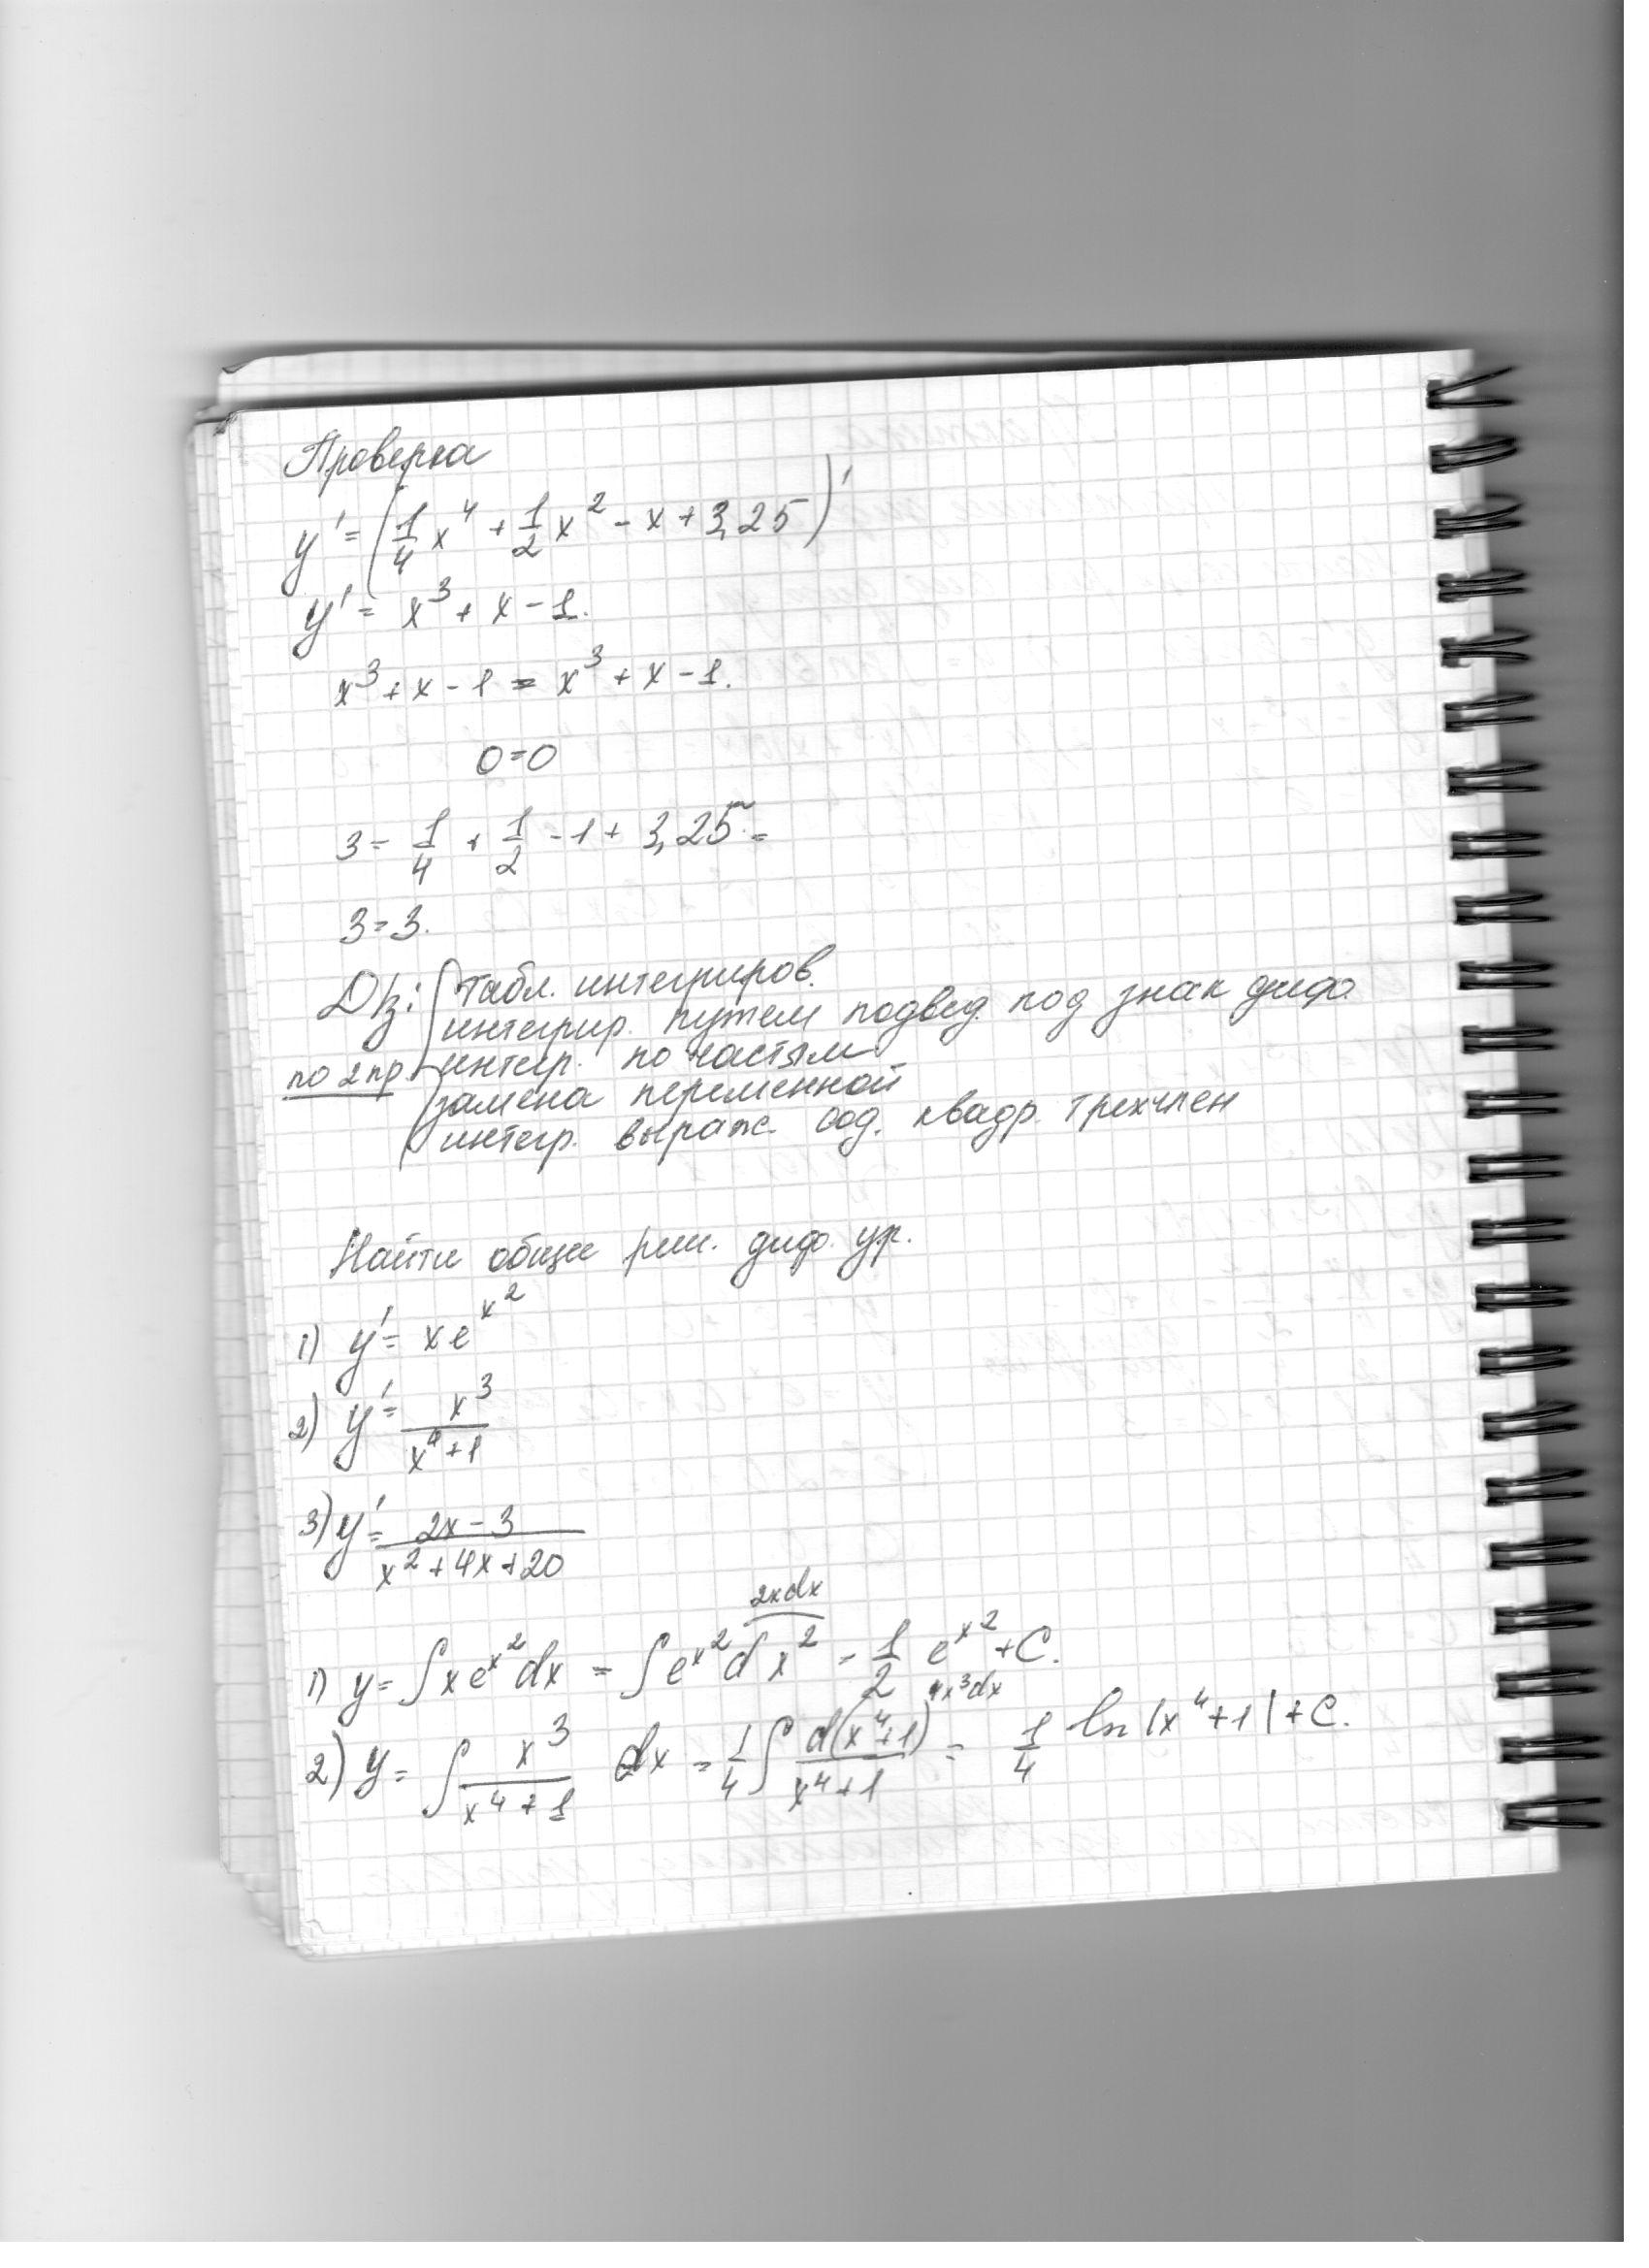 Проверка
y' = (1/4 x⁴ + 1/2 x² - x + 3,25)'
y' = x³ + x - 1.
x³ + x - 1 = x³ + x - 1.
0=0
3 = 1/4 + 1/2 - 1 + 3,25 =
3 = 3.
Dz: табл. интегриров.
интегрир. путем подвед. под знак диф.
по 2 пр интегр. по частям
замена переменной
интегр. выраж. сод. квадр. трехчлен
Найти общее реш. диф. ур.
1) y' = xe^x²
2) y' = x³/(x⁴+1)
3) y' = (2x-3)/(x²+4x+20)
2xdx
1) y = ∫xe^x² dx = ∫e^x² dx² = 1/2 e^x² + C.
4x³dx
2) y = ∫ x³/(x⁴+1) dx = 1/4 ∫ d(x⁴+1)/(x⁴+1) = 1/4 ln|x⁴+1| + C.